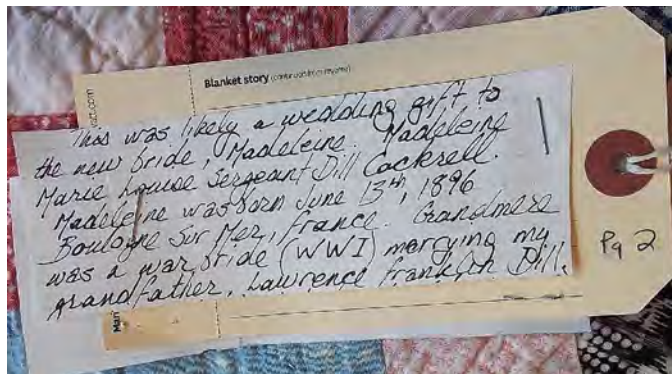 tact.com
Blanket story
This was likely a wedding gift to
the new bride, Madeleine. Madeleine
Marie Louise Sergeant Dill Cockrell.
Madeleine was born June 13th, 1896
Boulogne Sur Mer, France. Grandmere
was a war bride (WWI) marrying my
grandfather, Lawrence Franklin Dill.
Pg 2